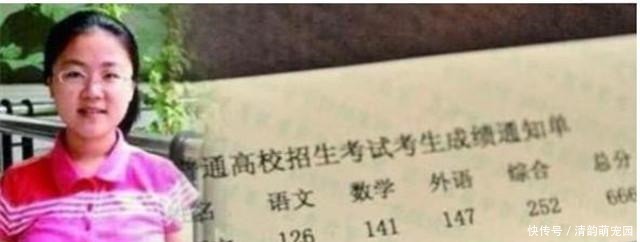 普通高校招生考试考生成绩通知单
姓名 语文 数学 外语 综合 总分
126 141 147 252 666
快传号／清韵萌宠园